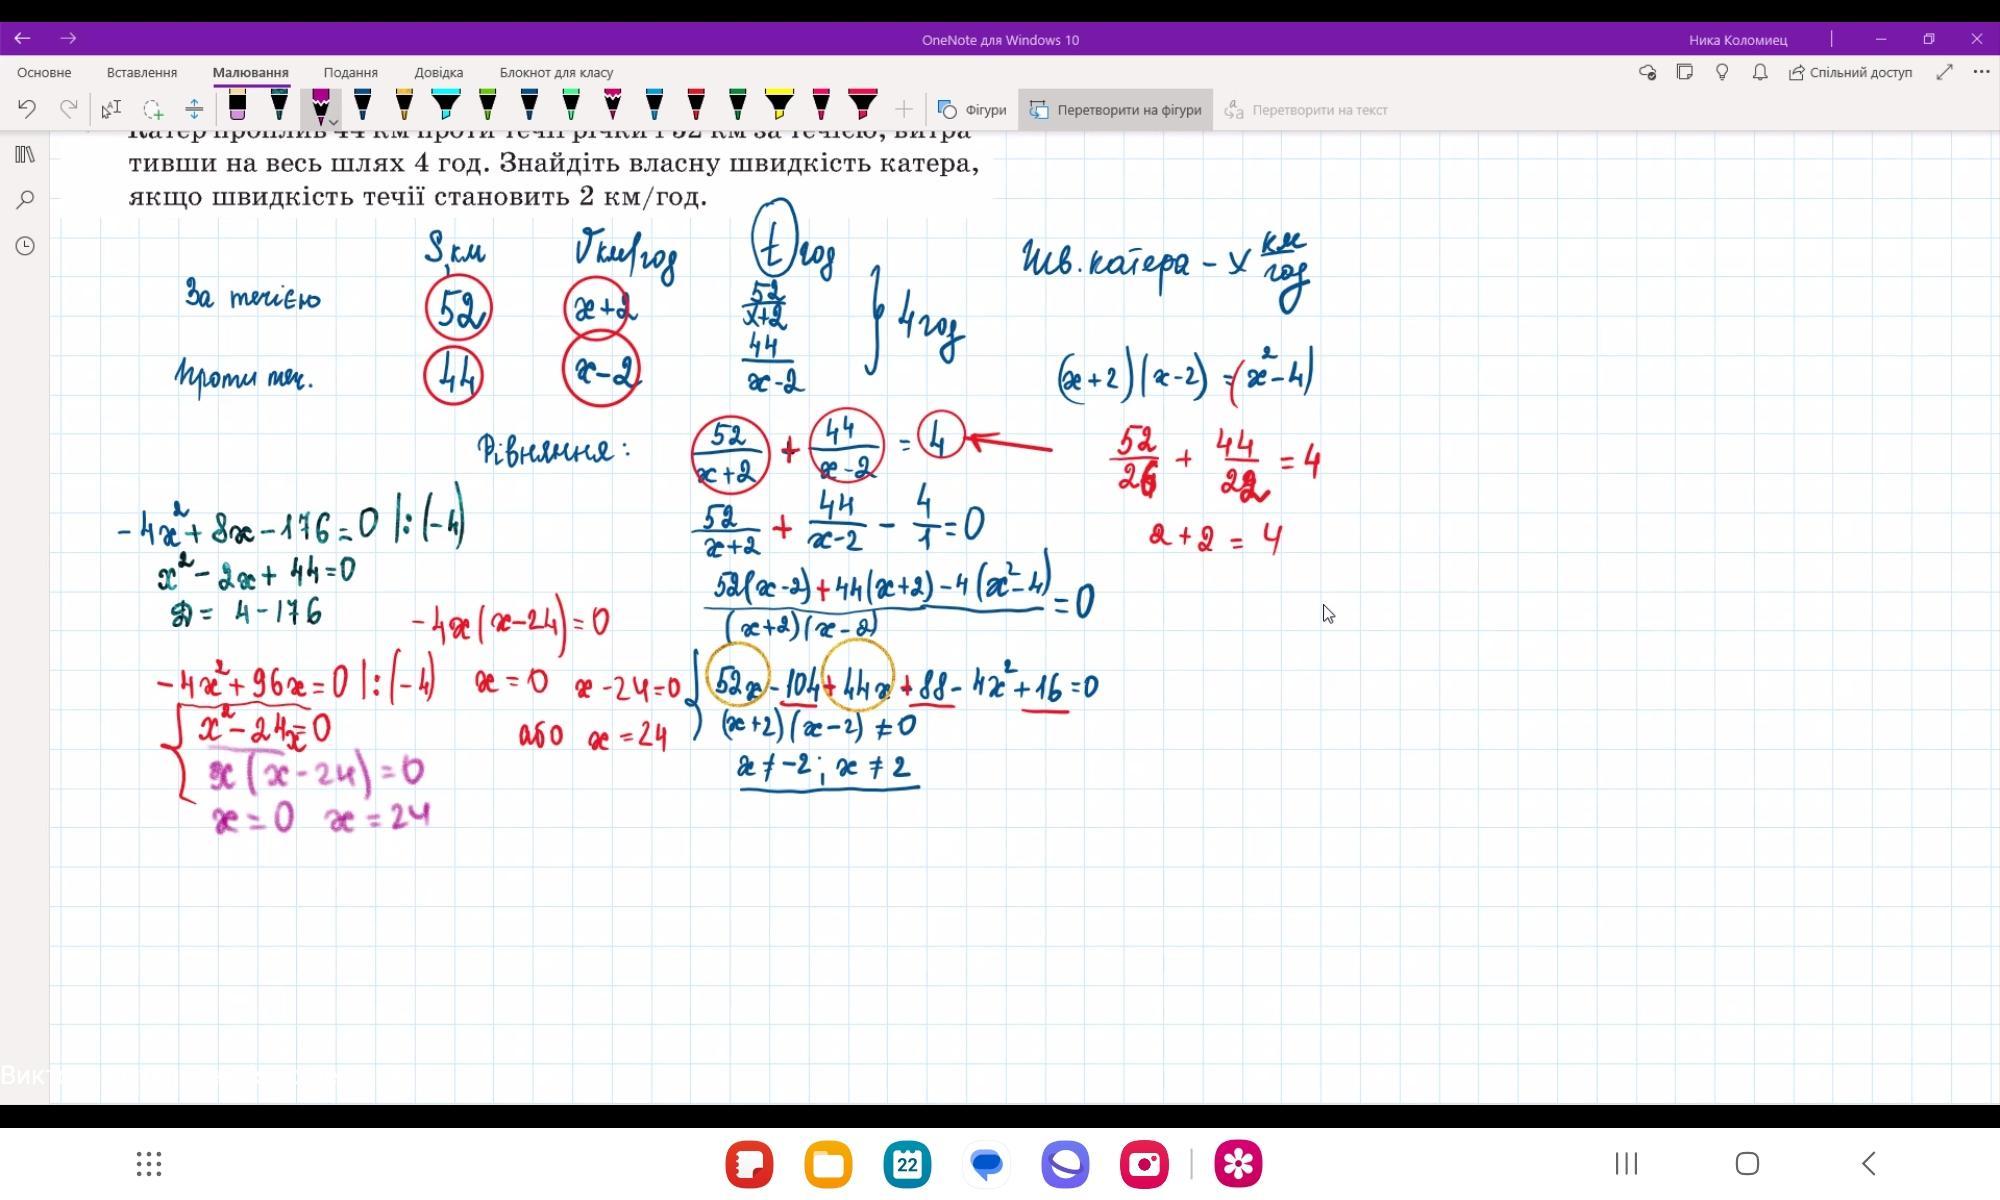 OneNote для Windows 10
Ника Коломиец
Основне Вставлення Малювання Подання Довідка Блокнот для класу
Спільний доступ
Фігури Перетворити на фігури Перетворити на текст
Катер проплив 44 км проти течії річки і 52 км за течією, витра
тивши на весь шлях 4 год. Знайдіть власну швидкість катера,
якщо швидкість течії становить 2 км/год.
S, км V км/год t год
Шв. катера - x км/год
За течією 52 x+2 52/(x+2)
Проти теч. 44 x-2 44/(x-2)
} 4 год
(x+2)(x-2) = (x²-4)
Рівняння: 52/(x+2) + 44/(x-2) = 4
52/26 + 44/22 = 4
2+2 = 4
52/(x+2) + 44/(x-2) - 4/1 = 0
(52(x-2)+44(x+2)-4(x²-4))/((x+2)(x-2)) = 0
52x-104+44x+88-4x²+16=0
(x+2)(x-2) ≠ 0
x ≠ -2; x ≠ 2
-4x²+8x-176=0 |:(-4)
x²-2x+44=0
D = 4-176
-4x(x-24)=0
x=0 x-24=0
або x=24
-4x²+96x=0 |:(-4)
x²-24x=0
x(x-24)=0
x=0 x=24
Вик
22